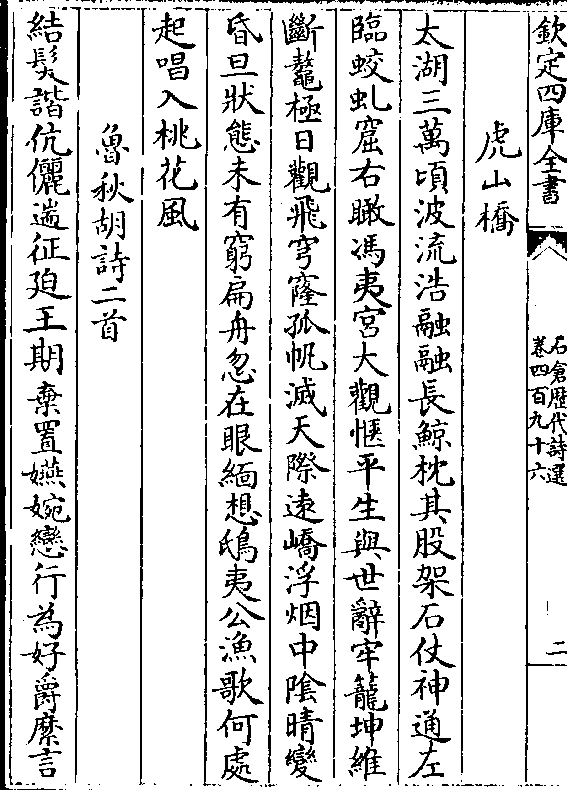 欽定四庫全書
石倉歷代詩選
卷四百九十六
二
虎山橋
太湖三萬頃波流浩融融長鯨枕其股架石仗神通左
臨蛟虬窟右瞰馮夷宮大觀愜平生與世辭牢籠坤維
斷鼇極日觀飛穹窿孤帆滅天際遠嶠浮烟中陰晴變
昏旦狀態未有窮扁舟忽在眼緬想鴟夷公漁歌何處
起唱入桃花風
魯秋胡詩二首
結髮諧伉儷遄征廹王期棄置嬿婉戀行為好爵縻言